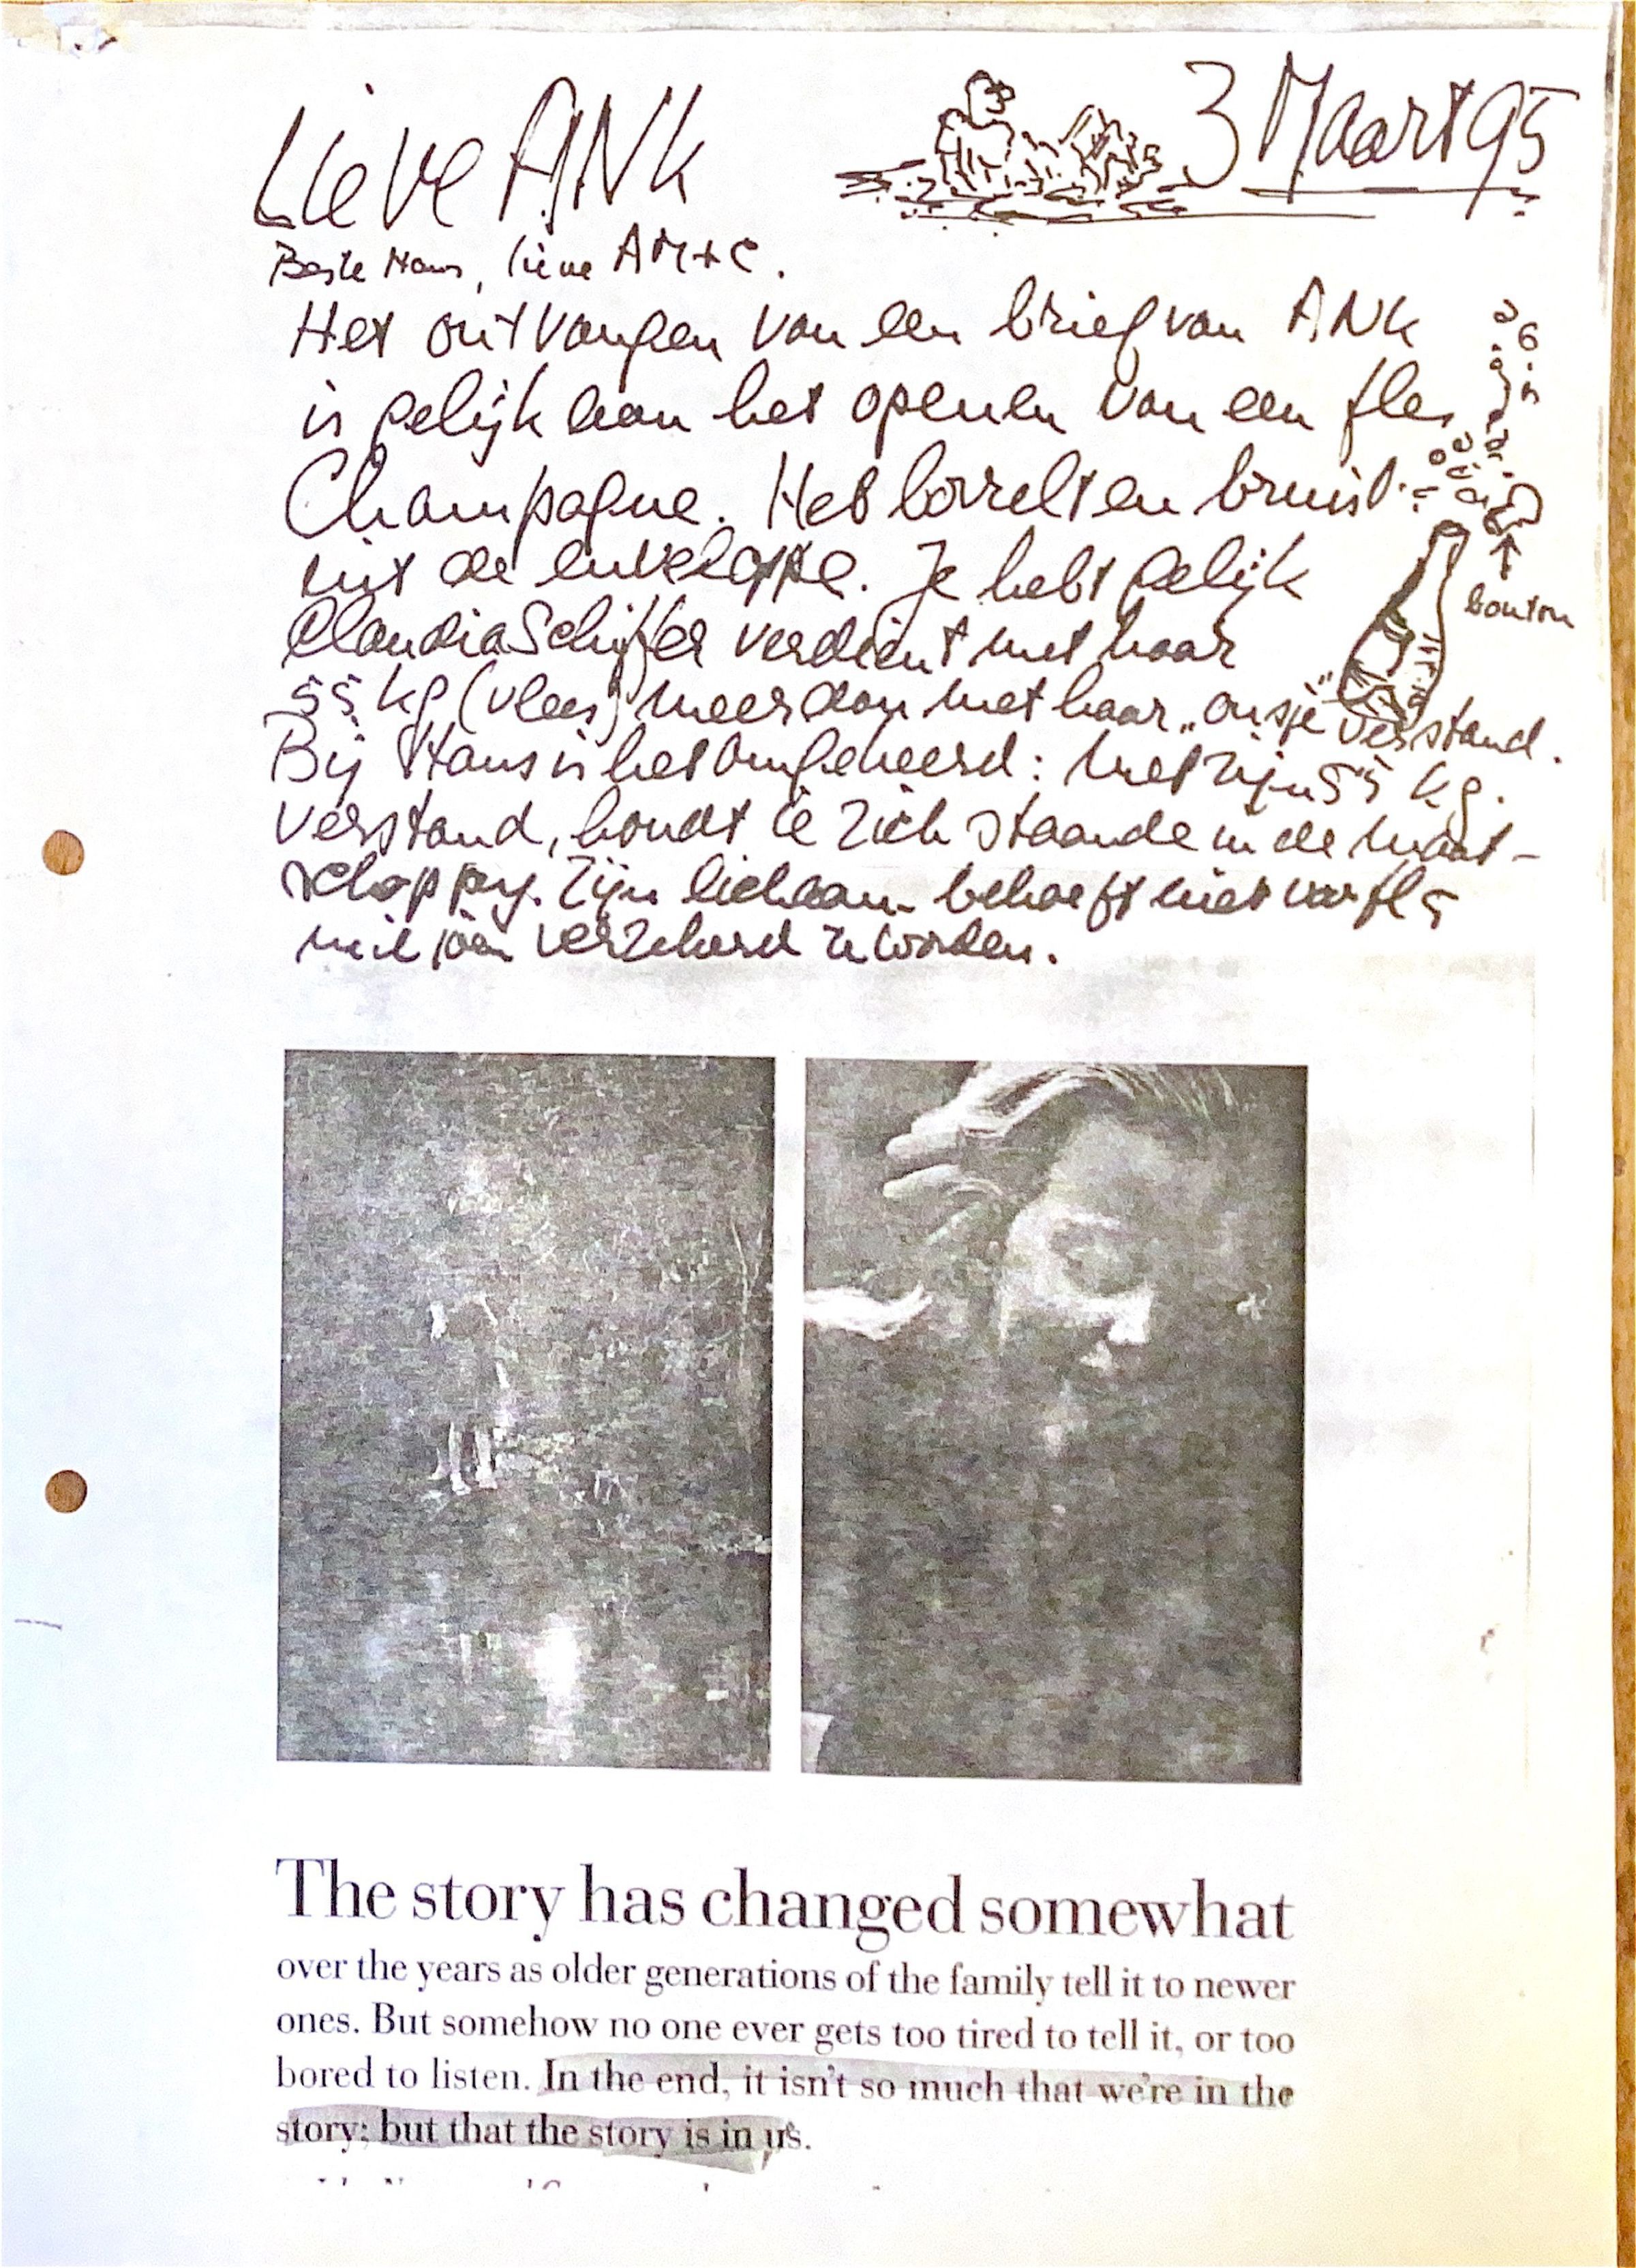 Lieve ANK
3 Maart 95
Beste Hans, lieve AM+C.
Het ontvangen van een brief van ANK
is gelijk aan het openen van een fles
Champagne. Het borrelt en bruist
uit de enveloppe. Je hebt gelijk
bouton
Claudia Schiffer verdient met haar
55 kg (vlees) meer dan met haar „onsje" verstand.
Bij Hans is het omgekeerd: met zijn 55 kg.
verstand, houdt ie zich staande in de maat-
schappij. Zijn lichaam behoeft niet voor fl 5
miljoen verzekerd te worden.
The story has changed somewhat
over the years as older generations of the family tell it to newer
ones. But somehow no one ever gets too tired to tell it, or too
bored to listen. In the end, it isn't so much that we're in the
story; but that the story is in us.